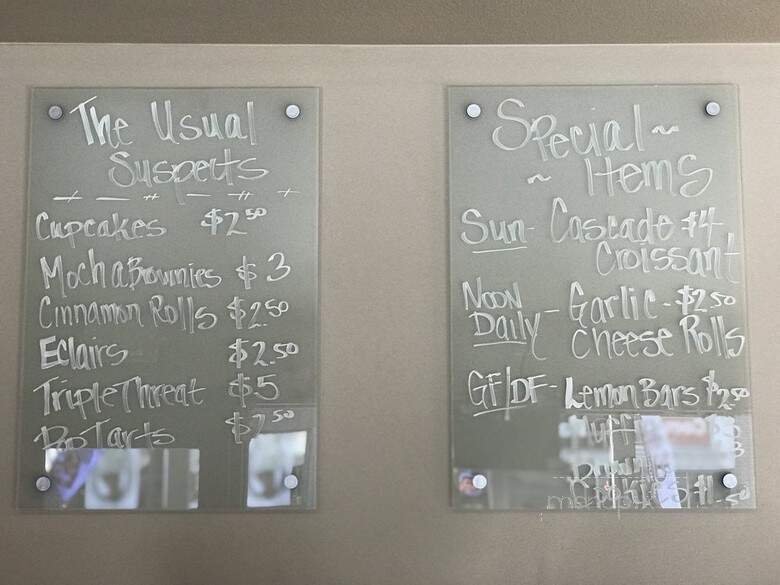 The Usual
Suspects
Cupcakes $2.50
Mocha Brownies $3
Cinnamon Rolls $2.50
Eclairs $2.50
Triple Threat $5
Pop Tarts $2.50
Special ~
~ Items
Sun - Cascade $4
Croissant
Noon - Garlic - $2.50
Daily Cheese Rolls
GF/DF - Lemon Bars $2.50